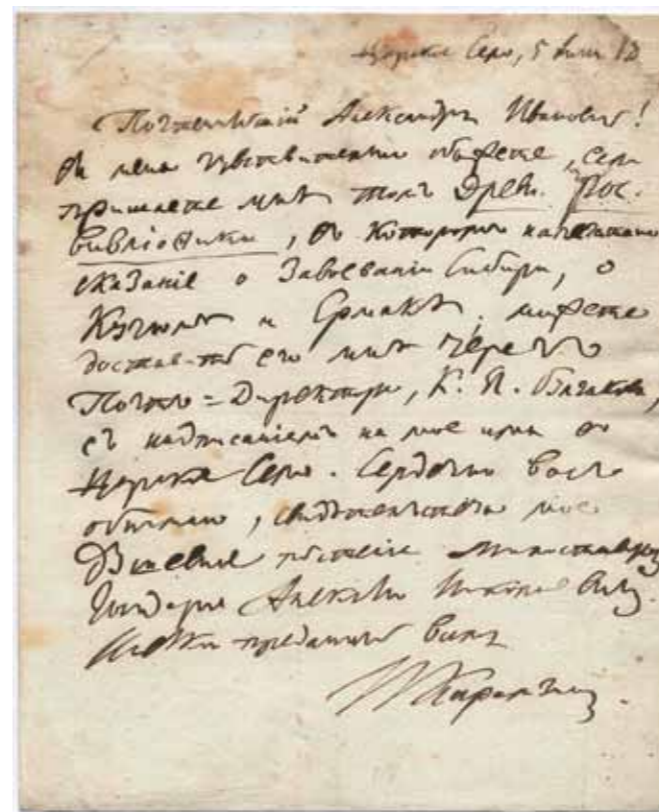 Царское Село, 5 Июля 18
Почтеннѣйшій Александръ Ивановичъ!
Вы меня чувствительно обяжете, если
пришлете мнѣ томъ Древ. Рос.
Вивліоѳики, въ которомъ напечатано
сказаніе о Завоеваніи Сибири, о
Кучюмѣ и Ермакѣ. можете
доставить его мнѣ черезъ
Почтъ=Директора, К. Я. Булгакова,
съ надписаніемъ на мое имя въ
Царское Село. Сердечно васъ
обнимаю, свидѣтельствую мое
Душевное почтеніе Милостивому
Государю Алексѣю Николаевичу.
преданный вамъ
Н Карамзинъ.